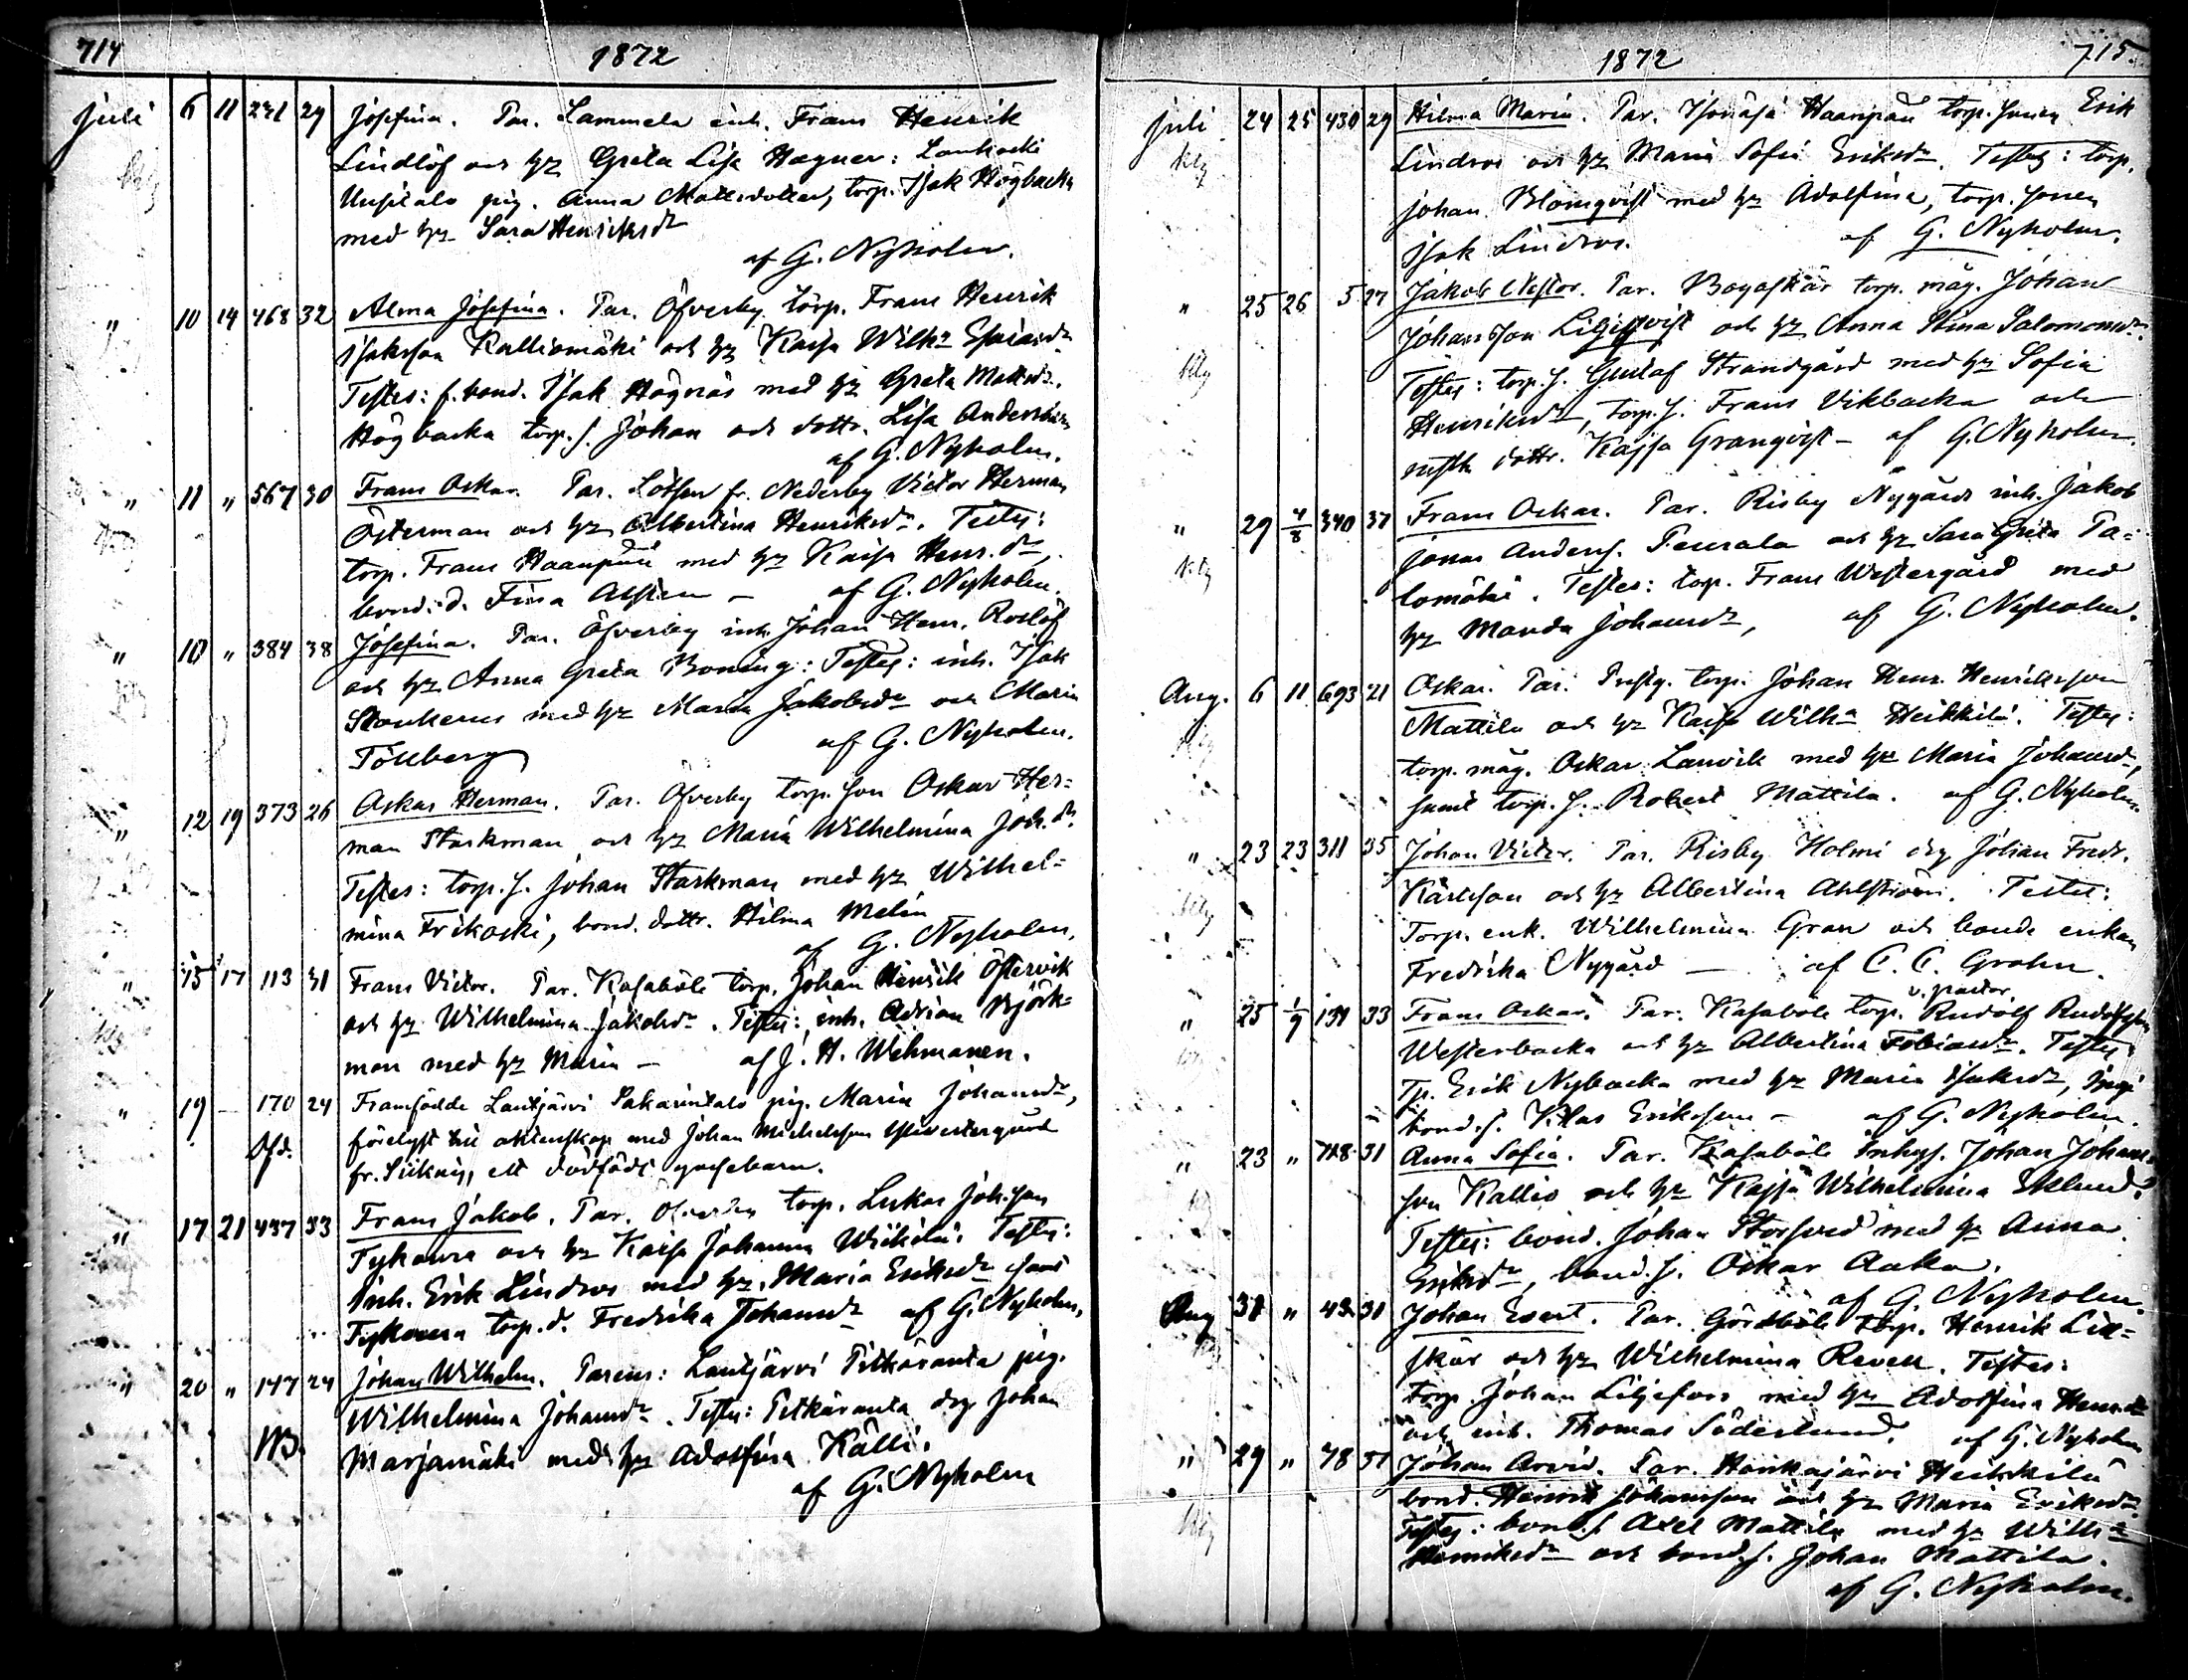 714
1872
Juli 6 11 231 29 Josefina. Par. Lammela inh. Frans Henrik
Lindlöf och hu Greta Lisa Hagner: Lankoski
pig. Anna Mattsdotter, torp. Isak Högbacka
med hu Sara Henriksdr
af G. Nyholm.
" 10 14 468 32 Alma Josefina. Par. Öfverby torp. Frans Henrik
Isaksson Kalliomäki och hu Kajsa Wilh:a Esaiasdr
Testes: f. bond. Isak Högnäs med hu Greta Mattsdr.
Högbacka torp. s. Johan och dottr. Lisa
af G. Nyholm.
" 11 " 567 30 Frans Oskar. Par. Lotsen fr. Nederby Victor Herman
Österman och hu Albertina Henriksdr. Testes:
torp. Frans Haanpää med hu Kaisa Henr. dr,
bond. d. Fina — af G. Nyholm.
" 10 " 384 38 Josefina. Par. Öfverby inh. Johan Henr. Roslöf
och hu Anna Greta Boning: Testes: inh. Isak
Stankerus med hu Maria Jakobsdr och Maria
Töllberg af G. Nyholm.
" 12 19 373 26 Oskar Herman. Par. Öfverby torp. son Oskar Her=
man Starkman och hu Maria Wilhelmina Joh. dr.
Testes: torp. s. Johan Starkman med hu Wilhel=
mina Frikoski, bond. dottr. Hilma Malin
af G. Nyholm.
" 15 17 113 31 Frans Victor. Par. Kasaböle torp. Johan Henrik Östervik
och hu Wilhelmina Jakobsdr. Testes: inh. Adrian Björk=
man med hu Maria — af J. H. Wehmanen.
" 19 — 170 24 Framfödde Lautjärvi pig. Maria Johansdr,
Ofd. förelyst till äktenskap med Johan Michelsson
fr. , ett dödfödt gossebarn.
" 17 21 437 33 Frans Jakob. Par. Öfverby torp. Lukas Joh. son
Tykoura och hu Kaisa Johanna Wiikilä. Testes:
Inh. Erik Lindros med hu Maria Eriksdr samt
Tykoura torp. d. Fredrika Johansdr af G. Nyholm.
" 20 " 147 24 Johan Wilhelm. Parens: Lautjärvi Pitkäranta pig.
Wilhelmina Johansdr. Testes: Pitkäranta drg Johan
NB. Marjamäki med hu Adolfina Källi.
af G. Nyholm
1872
715.
Juli 24 25 430 29 Hilma Maria. Par. Isonäsä Haanpää torp. sonen Erik
Lindros och hu Maria Sofia Eriksdr. Testes: torp.
Johan Blomqvist med hu Adolfina, torp. sonen
Isak Lindros. af G. Nyholm.
" 25 26 5 27 Jakob Nestor. Par. Bogaskär torp. måg. Johan
Johansson Liljeqvist och hu Anna Stina Salomonsdr.
Testes: torp. s. Gustaf Strandgård med hu Sofia
Henriksdr, torp. s. Frans Vikbacka och
dottr. Kajsa Granqvist — af G. Nyholm.
" 29 4/8 340 37 Frans Oskar. Par. Risby Nygårds inh. Jakob
Jonas Anders. Peurala och hu Sara Greta Pa=
lomäki. Testes: torp. Frans Westergård med
hu Manda Johansdr, af G. Nyholm.
Aug. 6 11 693 21 Oskar. Par. Prestg. torp. Johan Henr. Henriksson
Mattila och hu Kaisa Wilh:a Heikkilä. Testes:
torp. måg. Oskar Lanvik med hu Maria Johansdr,
samt torp. s. Robert Mattila. af G. Nyholm.
" 23 23 311 35 Johan Victor. Par. Risby Holmi drg Johan Fredr.
Karlsson och hu Albertina Ahlström. Testes:
Torp. enk. Wilhelmina Gran och bonde enkan
Fredrika Nygård — af C. C. Grohn.
v. pastor
" 25 1/9 131 33 Frans Oskar. Par. Kasaböle torp. Rudolf Rudolfsson
Westerbacka och hu Albertina Fabiansdr. Testes:
Tp. Erik Nybacka med hu Maria Isaksdr,
bond. s. Klas Eriksson — af G. Nyholm.
" 23 " 728 31 Anna Sofia. Par. Kasaböle Inhys. Johan Johans
son Kallio och hu Kajsa Wilhelmina Eklund.
Testes: bond. Johan Storsved med hu Anna
Eriksdr, bond. s. Oskar Aaka.
af G. Nyholm.
Aug 31 " 43 31 Johan Evert. Par. Gårdböle torp. Henrik Lill=
skär och hu Wilhelmina Reven. Testes:
torp. Johan Liljefors med hu Adolfina Henr.dr
och inh. Thomas Söderlund. af G. Nyholm
" 29 " 78 31 Johan Arvid. Par. Honkajärvi Heikkilä
bond. Henrik Johansson och hu Maria Eriksdr.
Testes: bond. s. Axel Mattila med hu Wilh:a
Henriksdr och bond. s. Johan Mattila.
af G. Nyholm.